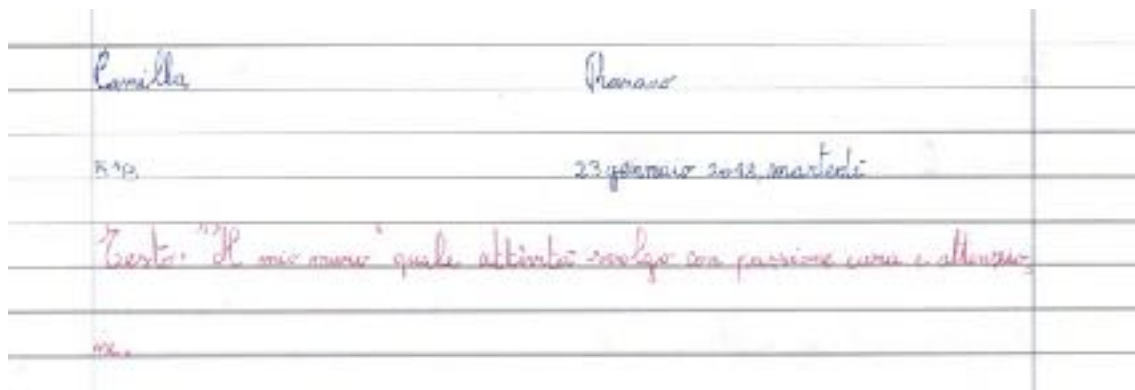 Camilla
5ªB. 23 gennaio 2018, martedì
Testo: "Il mio muro" quale attività svolgo con passione cura e attenzio
ne.